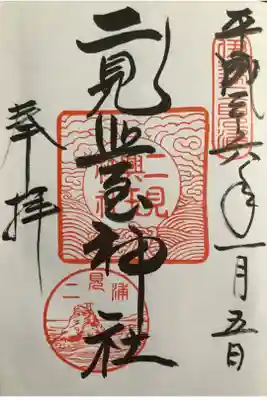 平成二六年一月五日
二見興玉神社
奉拝
二見興玉神社
二見浦